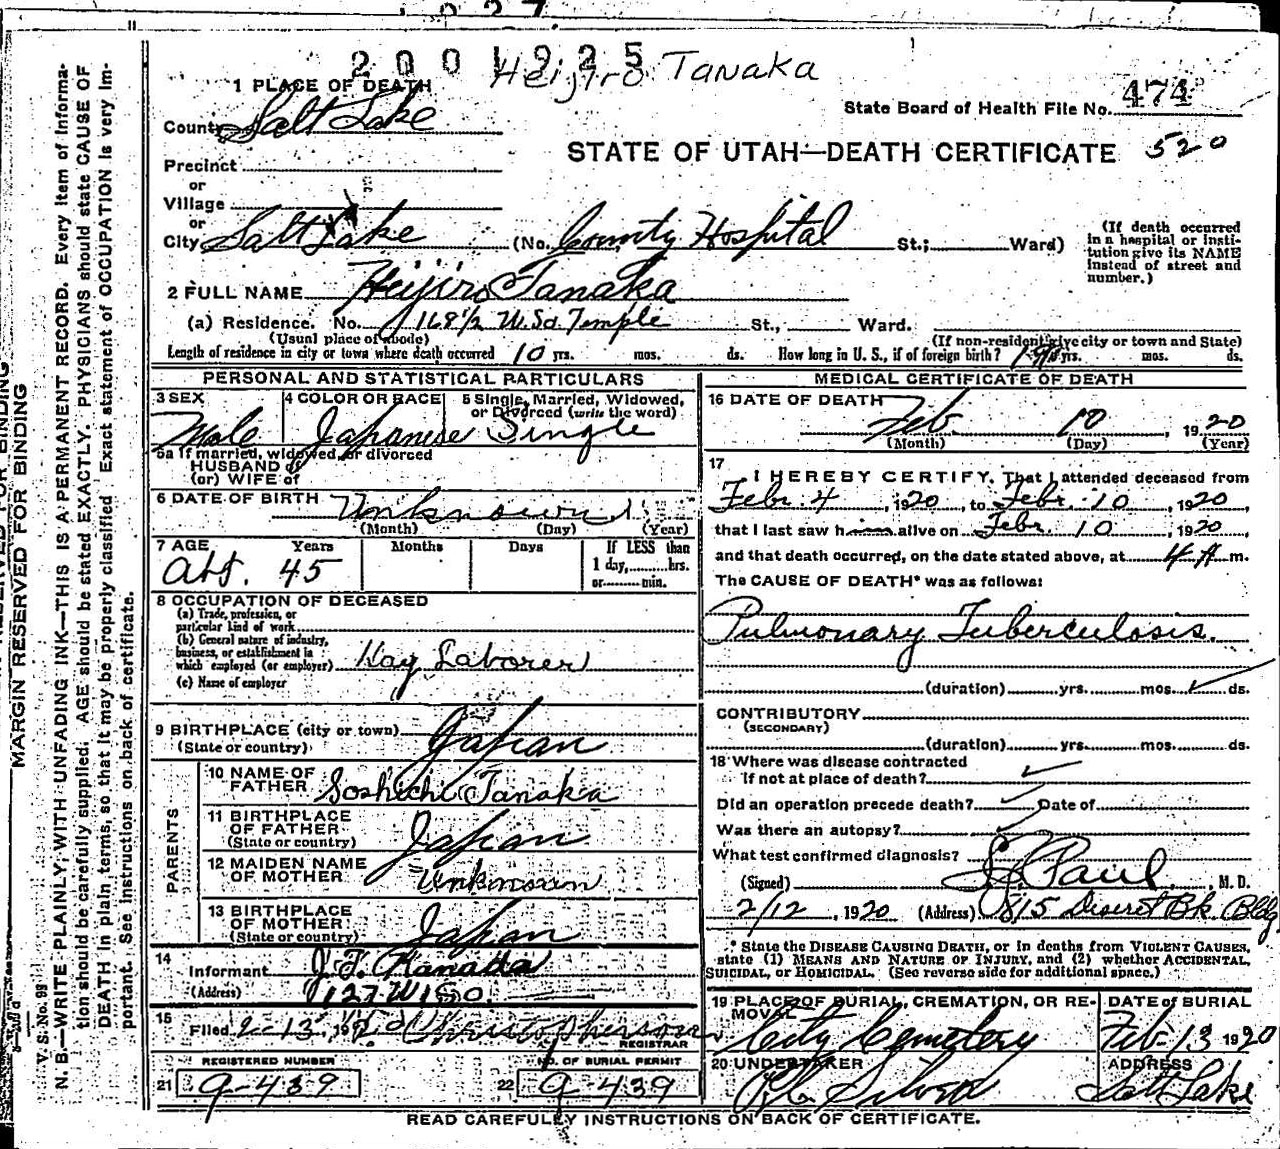 2001925
Heijiro Tanaka
1 PLACE OF DEATH
County Salt Lake
State Board of Health File No. 474
STATE OF UTAH—DEATH CERTIFICATE 520
Precinct
or
Village
or
City Salt Lake (No. County Hospital St.; Ward)
(If death occurred in a hospital or institution give its NAME instead of street and number.)
2 FULL NAME Heijiro Tanaka
(a) Residence. No. 168½ W. So. Temple St., Ward.
(Usual place of abode) (If non-resident give city or town and State)
Length of residence in city or town where death occurred 10 yrs. mos. ds. How long in U. S., if of foreign birth? yrs. mos. ds.
PERSONAL AND STATISTICAL PARTICULARS
3 SEX Male
4 COLOR OR RACE Japanese
5 Single, Married, Widowed, or Divorced (write the word) Single
5a If married, widowed, or divorced
HUSBAND of
(or) WIFE of
6 DATE OF BIRTH Unknown
(Month) (Day) (Year)
7 AGE Years Months Days If LESS than
Abt. 45 1 day, hrs.
or min.
8 OCCUPATION OF DECEASED
(a) Trade, profession, or
particular kind of work
(b) General nature of industry,
business, or establishment in
which employed (or employer) Hay Laborer
(c) Name of employer
9 BIRTHPLACE (city or town) Japan
(State or country)
PARENTS
10 NAME OF FATHER Soshichi Tanaka
11 BIRTHPLACE OF FATHER Japan
(State or country)
12 MAIDEN NAME OF MOTHER Unknown
13 BIRTHPLACE OF MOTHER Japan
(State or country)
14 Informant J. T. Kanada
(Address) 127 W 1 So.
15 Filed 2-13, 19 Christopherson
REGISTRAR
REGISTERED NUMBER NO. OF BURIAL PERMIT
21 9-439 22 9-439
MEDICAL CERTIFICATE OF DEATH
16 DATE OF DEATH
Feb. 10, 1920
(Month) (Day) (Year)
17
I HEREBY CERTIFY, That I attended deceased from
Febr. 4, 1920, to Febr. 10, 1920,
that I last saw him alive on Febr. 10, 1920,
and that death occurred, on the date stated above, at 4 A m.
The CAUSE OF DEATH* was as follows:
Pulmonary Tuberculosis.
(duration) yrs. mos. ds.
CONTRIBUTORY
(SECONDARY)
(duration) yrs. mos. ds.
18 Where was disease contracted
If not at place of death?
Did an operation precede death? Date of
Was there an autopsy?
What test confirmed diagnosis?
(Signed) Paul, M. D.
2/12, 1920 (Address) 815 Deseret Bk. Bldg
* State the DISEASE CAUSING DEATH, or in deaths from VIOLENT CAUSES,
state (1) MEANS AND NATURE OF INJURY, and (2) whether ACCIDENTAL,
SUICIDAL, or HOMICIDAL. (See reverse side for additional space.)
19 PLACE OF BURIAL, CREMATION, OR REMOVAL City Cemetery
DATE of BURIAL Feb-13 1920
20 UNDERTAKER
ADDRESS Salt Lake
READ CAREFULLY INSTRUCTIONS ON BACK OF CERTIFICATE.
MARGIN RESERVED FOR BINDING
V. S. No. 99
N. B.—WRITE PLAINLY, WITH UNFADING INK—THIS IS A PERMANENT RECORD. Every item of Informa-
tion should be carefully supplied. AGE should be stated EXACTLY. PHYSICIANS should state CAUSE OF
DEATH in plain terms, so that it may be properly classified. Exact statement of OCCUPATION is very im-
portant. See instructions on back of certificate.